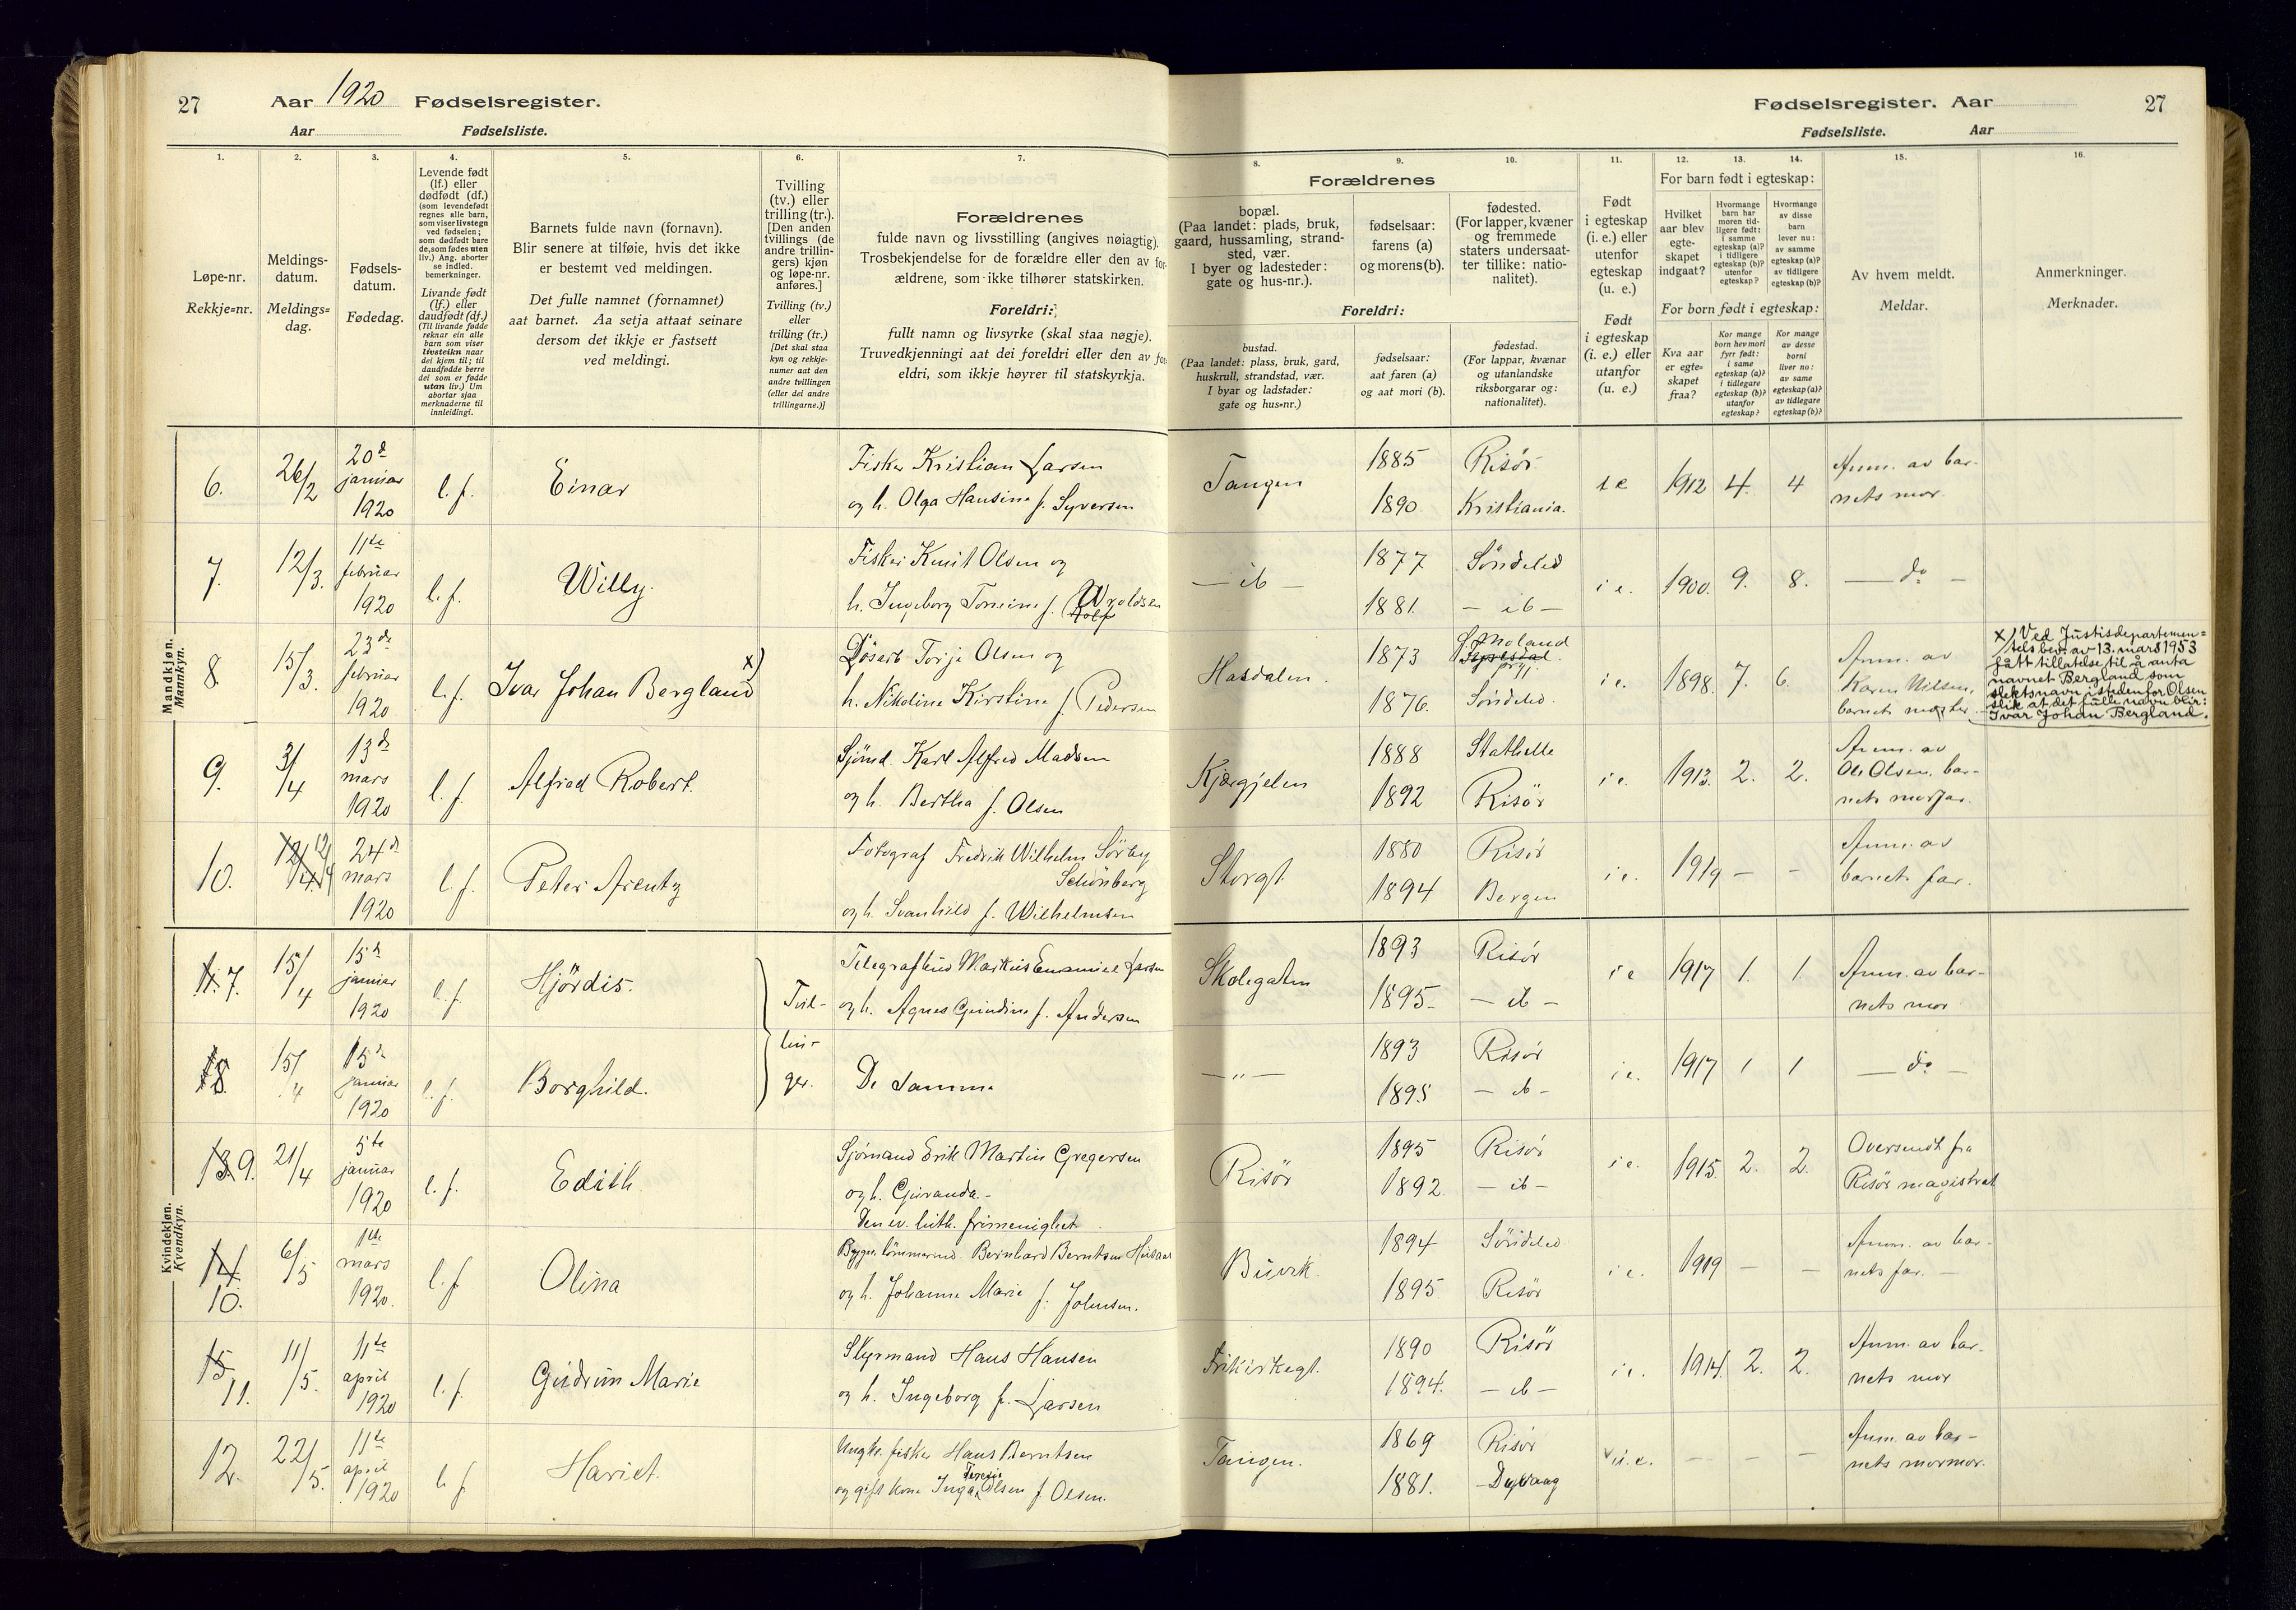 27 Aar 1920 Fødselsregister.
Aar Fødselsliste.
Fødselsregister. Aar 27
Fødselsliste. Aar
1.
Løpe-nr.
Rekkje=nr.
2.
Meldings-
datum.
Meldings=
dag.
3.
Fødsels-
datum.
Fødedag.
4.
Levende født
(lf.) eller
dødfødt (df.)
(som levendefødt
regnes alle barn,
som viser livstegn
ved fødselen;
som dødfødt bare
de, som fødes uten
liv.) Ang. aborter
se indled.
bemerkninger.
Livande født
(lf.) eller
daudfødt (df.)
(Til livande fødde
reknar ein alle
barn som viser
livsteikn naar
dei kjem til; til
daudfødde berre
dei som er fødde
utan liv.) Um
abortar sjaa
merknaderne til
innleidingi.
5.
Barnets fulde navn (fornavn).
Blir senere at tilføie, hvis det ikke
er bestemt ved meldingen.
Det fulle namnet (fornamnet)
aat barnet. Aa setja attaat seinare
dersom det ikkje er fastsett
ved meldingi.
6.
Tvilling
(tv.) eller
trilling (tr.).
[Den anden
tvillings (de
andre trillin-
gers) kjøn
og løpe-nr.
anføres.]
Tvilling (tv.)
eller
trilling (tr.)
[Det skal staa
kyn og rekkje-
numer aat den
andre tvillingen
(eller dei andre
trillingarne.)]
7.
Forældrenes
fulde navn og livsstilling (angives nøiagtig).
Trosbekjendelse for de forældre eller den av for-
ældrene, som ikke tilhører statskirken.
Foreldri:
fullt namn og livsyrke (skal staa nøgje).
Truvedkjenningi aat dei foreldri eller den av for-
eldri, som ikkje høyrer til statskyrkja.
Forældrenes
8.
bopæl.
(Paa landet: plads, bruk,
gaard, hussamling, strand-
sted, vær.
I byer og ladesteder:
gate og hus-nr.).
9.
fødselsaar:
farens (a)
og morens (b).
10.
fødested.
(For lapper, kvæner
og fremmede
staters undersaat-
ter tillike: natio-
nalitet).
Foreldri:
bustad.
(Paa landet: plass, bruk, gard,
huskrull, strandstad, vær.
I byar og ladstader:
gate og hus=nr.)
fødselsaar:
aat faren (a)
og aat mori (b).
fødestad.
(For lappar, kvænar
og utanlandske
riksborgarar og:
nationalitet).
11.
Født
i egteskap
(i. e.) eller
utenfor
egteskap
(u. e.)
Født
i egteskap
(i. e.) eller
utanfor
(u. e.)
12. 13. 14.
For barn født i egteskap:
Hvilket
aar blev
egte-
skapet
indgaat?
Hvormange
barn har
moren tid-
ligere født:
i samme
egteskap (a)?
i tidligere
egteskap (b)?
utenfor
egteskap?
Hvormange
av disse
barn
lever nu:
av samme
egteskap (a)?
av tidligere
egteskap (b)?
For born født i egteskap:
Kva aar
er egte=
skapet
fraa?
Kor mange
born hev mori
fyrr født:
i same
egteskap (a)?
i tidlegare
egteskap (b)?
utanfor
egteskap?
Kor mange
av desse
borni
liver no:
av same
egteskap (a)?
av tidlegare
egteskap (b)?
15.
Av hvem meldt.
Meldar.
16.
Anmerkninger.
Merknader.
Mandkjøn.
Mannkyn.
6. 26/2 20d januar 1920 l. f. Einar
Fisker Kristian Larsen
og h. Olga Hansine f. Syversen
Tangen 1885 Risör i e 1912 4. 4 Anm. av bar-
1890 Kristiania. nets mor.
7. 12/3. 11te februar 1920 l. f. Willy.
Fisker Knut Olsen og
h. Ingeborg Tomine f. Wroldsen
— ib — 1877 Söndeled i e. 1900. 9. 8. — do —
1881. — ib —
8. 15/3. 23de februar 1920 l. f. Ivar Johan Bergland x)
Lösarb. Torje Olsen og
h. Nikoline Kirstine f. Pedersen
Hasdalen. 1873 i e. 1898. 7. 6. Anm. av
1876. Söndeled. Karen Nilsen,
x) Ved Justisdepartemen=
tets bev. av 13. mars 1953
fått tillatelse til å anta
navnet Bergland som
slektsnavn istedenfor Olsen
slik at det fulle navn blir:
Ivar Johan Bergland.
9. 3/4 13d mars 1920 l. f. Alfred Robert.
Sjömd. Karl Alfred Madsen
og h. Bertha f. Olsen
Kjærgjelen 1888 Stathelle i e. 1913. 2. 2. Anm. av
1892 Risör Ole Olsen, bar-
nets morfar.
10. 12/4 24d mars 1920 l. f. Peter Arentz
Fotograf Fredrik Wilhelm Sörby
Schönberg
og h. Svanhild f. Wilhelmsen
Storgt. 1880 Risör i e. 1919 — - Anm. av
1894 Bergen barnets far.
Kvindekjøn.
Kvendkyn.
7. 15/4 15d januar 1920 l. f. Hjördis. Tvil-
Telegrafbud Markus Emanuel Larsen
og h. Agnes Gundine f. Andersen
Skolegaten 1893 Risör i e 1917 1. 1 Anm. av bar-
1895- — ib — nets mor
8. 15/4 15d januar 1920 l. f. Borghild. lin-
ger. De samme
— „ — 1893 Risör i e. 1917 1 1 — do —
1895 — ib -
9. 21/4 5te januar 1920 l. f. Edith.
Sjömand Erik Martin Gregersen
og h. Guranda.-
Den ev. luth. frimenighet
Risör 1895 Risör i e. 1915. 2. 2. Oversendt fra
1892. — ib — Risör magistrat
14 10. 6/5 1ste mars 1920. l. f. Olina
Bernhard Berntsen
og h. Johanne Marie f. Johnsen.
Buvik. 1894 Söndeled i e. 1919 — — Anm. av bar-
1895 Risör nets far. —
15 11. 11/5. 11te april 1920 l. f. Gudrun Marie
Styrmand Hans Hansen
og h. Ingeborg f. Larsen
Frikirkegt. 1890 Risör i e. 1914. 2. 2. Anm. av bar-
1894. — ib — nets mor
12. 22/5. 11te april 1920 l. f. Hariet.
Ungk. fisker Hans Berntsen
og gift kone Inga Teresie Olsen f. Olsen.
Tangen. 1869 Risör u. e. — - — Anm. av bar-
1881. Dypvaag nets mormor.